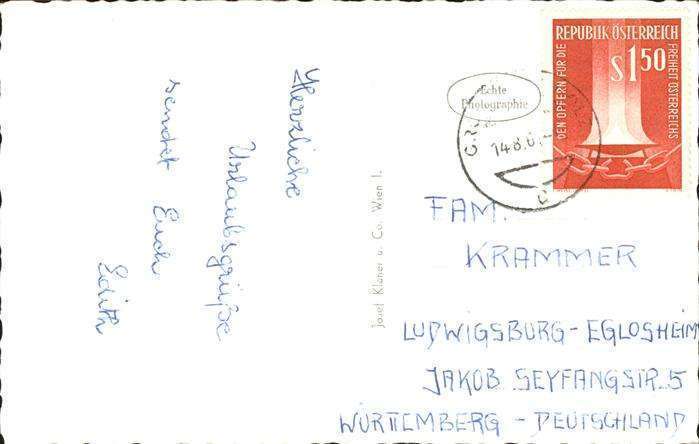 Herzliche
Urlaubsgrüße
sendet Euch
Edith
Josef Klaner u. Co. Wien I.
Echte
Photographie
REPUBLIK ÖSTERREICH
S 1,50
DEN OPFERN FÜR DIE
FREIHEIT ÖSTERREICHS
14.8.6
FAM.
KRAMMER
LUDWIGSBURG-EGLOSHEIM
JAKOB SEYFANGSTR. 5
WÜRTTEMBERG - DEUTSCHLAND